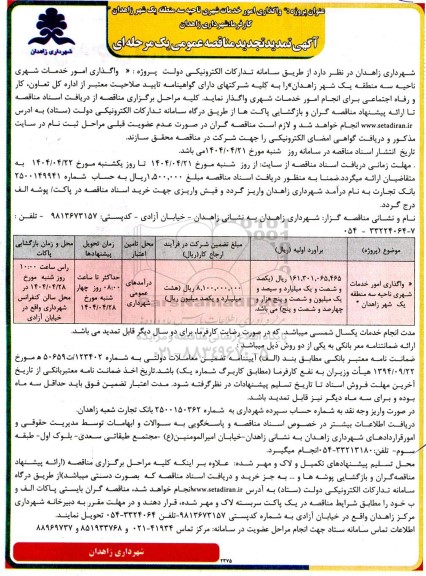 عنوان پروژه :" واگذاری امور خدمات شهری ناحیه سه منطقه یک شهر زاهدان "
کارفرما:شهرداری زاهدان
آگهی تمدید تجدید مناقصه عمومی یک مرحله ای
شهرداری زاهدان
شهرداری زاهدان در نظر دارد از طریق سامانه تدارکات الکترونیکی دولت پروژه : « واگذاری امور خدمات شهری
ناحیه سه منطقه یک شهر زاهدان» را به کلیه شرکتهای دارای گواهینامه تایید صلاحیت معتبر از اداره کل تعاون، کار
و رفاه اجتماعی برای انجام امور خدمات شهری واگذار نماید. کلیه مراحل برگزاری مناقصه از دریافت اسناد مناقصه
تا ارائه پیشنهاد مناقصه گران و بازگشایی پاکت ها از طریق درگاه سامانه تدارکات الکترونیکی دولت (ستاد) به آدرس
www.setadiran.ir انجام خواهد شد و لازم است مناقصه گران در صورت عدم عضویت قبلی مراحل ثبت نام در سایت
مذکور و دریافت گواهی امضای الکترونیکی را جهت شرکت در مناقصه محقق سازند.
تاریخ انتشار اسناد مناقصه در سامانه روز شنبه مورخ ۱۴۰۴/۰۴/۲۱ می باشد.
. مهلت زمانی دریافت اسناد مناقصه از سایت: از روز شنبه مورخ ۱۴۰۴/۰۴/۲۱ تا روز یکشنبه مورخ ۱۴۰۴/۰۴/۲۲ به
متقاضیان ارائه میگردد. ضمنا به منظور دریافت اسناد مناقصه مبلغ ۱,۵۰۰,۰۰۰ ریال به حساب شماره ۲۵۰۰۱۴۹۹۴۱
بانک تجارت به نام درآمد شهرداری زاهدان واریز گردد و فیش واریزی جهت خرید اسناد مناقصه در پاکت/ پوشه الف
درج گردد.
نام و نشانی مناقصه گزار: شهرداری زاهدان به نشانی زاهدان - خیابان آزادی - کدپستی: ۹۸۱۳۶۷۳۱۵۷ - تلفن :
۳۳۲۲۴۰۶۴-۷ - ۰۵۴
موضوع (پروژه) برآورد اولیه (ریال) مبلغ تضمین شرکت در فرآیند ارجاع کار(ریال) محل تامین اعتبار زمان تحویل پیشنهادها محل و زمان بازگشایی پاکات
« واگذاری امور خدمات شهری ناحیه سه منطقه یک شهر زاهدان " ۱۶۱,۳۰۱,۰۶۵,۴۶۵ ریال (یکصد و شصت و یک میلیارد و سیصد و یک میلیون و شصت و پنج هزار و چهارصد و شصت و پنج) می باشد ۸,۱۰۰,۰۰۰,۰۰۰ ریال (هشت میلیارد و یکصد میلیون ریال) درآمدهای عمومی شهرداری حداکثر تا ساعت ۰۸:۰۰ روز چهار شنبه مورخ ۱۴۰۴/۰۴/۲۸ راس ساعت ۱۰:۰۰ روز شنبه مورخ ۱۴۰۴/۰۴/۲۸ محل سالن کنفرانس شهرداری واقع در خیابان آزادی
مدت انجام خدمات یکسال شمسی میباشد. که در صورت رضایت کارفرما، برای دو سال دیگر قابل تمدید می باشد.
ارائه ضمانتنامه معر بانکی به یکی از دو روش ذیل میباشد:
ضمانت نامه معتبر بانکی مطابق بند (الف) آییننامه تضمین معاملات دولتی به شماره ۱۲۳۴۰۲/ت ۵۰۶۵۹ ه مورخ
۱۳۹۴/۰۹/۲۲ هیأت وزیران به نفع کارفرما (مطابق کاربرگ شماره یک) باشد.تاریخ اخذ ضمانت نامه معتبربانکی از تاریخ
آخرین مهلت فروش اسناد تا تاریخ تسلیم پیشنهادات در نظرگرفته شود. مدت اعتبار تضمین فوق باید حداقل سه ماه
بوده و برای سه ماه دیگر نیز قابل تمدید باشد.
در صورت واریز وجه نقد به شماره حساب سپرده شهرداری به شماره ۲۵۰۰۱۵۰۳۶۲ بانک تجارت شعبه زاهدان.
دریافت اطلاعات بیشتر در خصوص اسناد مناقصه و پاسخگویی به سوالات و ابهامات توسط مدیریت حقوقی و
امورقراردادهای شهرداری زاهدان به نشانی زاهدان-خیابان امیرالمومنین(ع) -مجتمع طبقاتی سعدی- بلوک اول- طبقه
سوم- تلفن:۳۳۲۱۳۱۸۰-۰۵۴ انجام میگیرد.
محل تسلیم پیشنهادهای تکمیل و لاک و مهر شده: علاوه بر اینکه کلیه مراحل برگزاری مناقصه (ارائه پیشنهاد
مناقصه گران و بازگشایی پوشه ها و ... به جز خرید و دریافت اسناد مناقصه که بصورت دستی میباشد) از طریق درگاه
سامانه تدارکات الکترونیکی دولت (ستاد) به آدرس www.setadiran.ir انجام خواهد شد، مناقصه گران بایستی پاکات الف و
ب خود را مطابق شرایط مناقصه در یک پاکت سربسته لاک و مهر شده، قرار دهند و در مهلت مقرر به دبیرخانه شهرداری
مرکز زاهدان واقع در خیابان آزادی به شماره کدپستی ۹۸۱۳۶۷۳۱۵۷-تلفن ۳۳۲۲۴۰۶۴-۰۵۴ تحویل نمایند.
اطلاعات تماس سامانه ستاد جهت انجام مراحل عضویت در سامانه: مرکز تماس ۴۱۹۳۴-۰۲۱ و ۸۵۱۹۳۳۷۶۸ و ۸۸۹۶۹۷۳۷
شهرداری زاهدان
۲۳۷۵